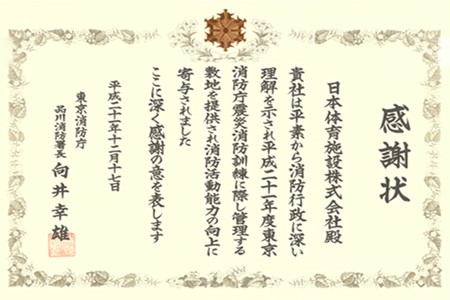 感謝状
日本体育施設株式会社殿
貴社は平素から消防行政に深い
理解を示され平成二十一年度東京
消防庁震災消防訓練に際し管理する
敷地を提供され消防活動能力の向上に
寄与されました
ここに深く感謝の意を表します
平成二十一年十二月十七日
東京消防庁
品川消防署長 向井幸雄